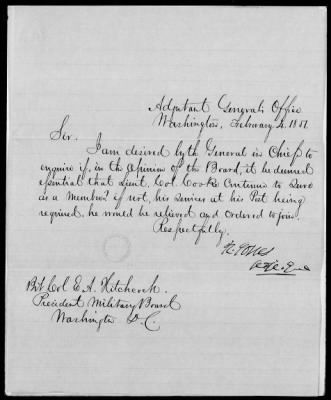 Adjutant General's Office
Washington, February 2, 1851.
Sir.
I am desired by the General in Chief to
enquire if, in the opinion of the Board, it be deemed
essential that Lieut. Col. Cooke continue to serve
as a Member? if not, his services at his Post being
required, he would be relieved and ordered to join.
Respectfully,
Bvt Col E. A. Hitchcock.
President Military Board
Washington D. C.